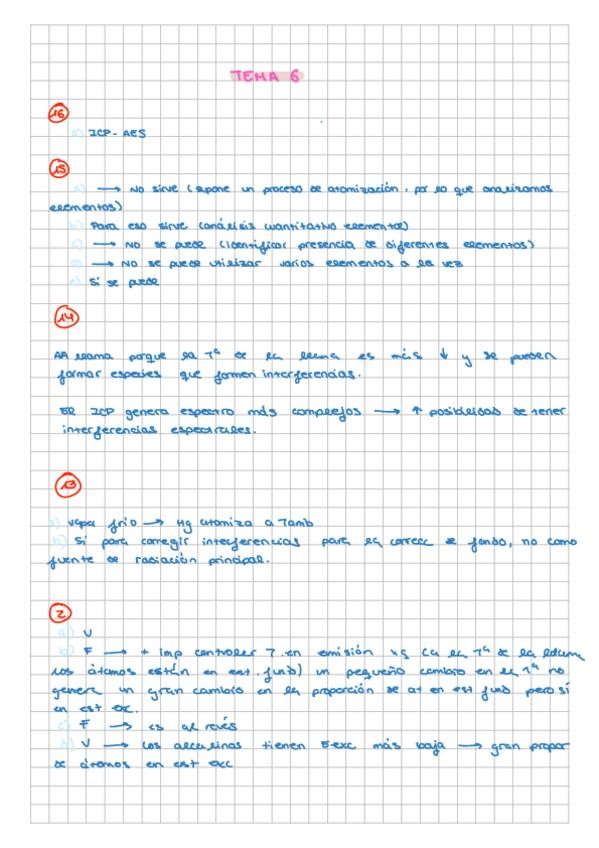 TEMA 6
16
a) ICP-AES
15
a) → No sirve (supone un proceso de atomización, por lo que analizamos
elementos)
b) Para eso sirve (análisis cuantitativo elemental)
c) → No se puede (identificar presencia de diferentes elementos)
d) → No se puede utilizar varios elementos a la vez
e) Sí se puede
14
AA llama porque la Tª de la llama es más ↓ y se pueden
formar especies que formen interferencias.
El ICP genera espectro más complejos → ↑ posibilidad de tener
interferencias espectrales.
13
c) vapor frío → Hg atomiza a Tamb
d) Sí para corregir interferencias para la correcc de fondo, no como
fuente de radiación principal.
2
a) V
b) F → + imp controlar T. en emisión xq (a la Tª de la llama
los átomos están en est. fund) un pequeño cambio en la Tª no
genera un gran cambio en la proporción de at en est fund pero sí
en est exc.
c) F → es al revés
d) V → Los alcalinos tienen Eexc más baja → gran propor
de átomos en est exc